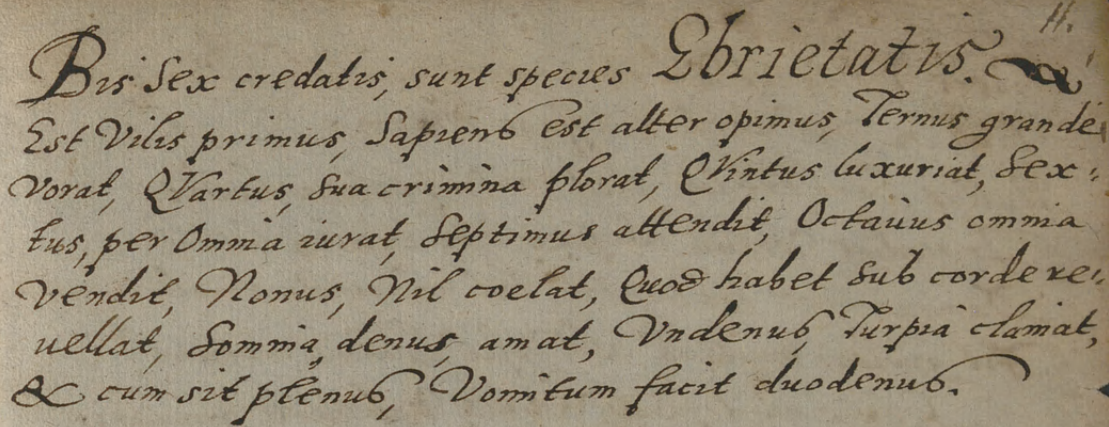 11.
Bis Sex credatis, sunt species Ebrietatis.
Est Vilis primus, Sapiens est alter opimus, Ternus grande
vorat, QVartus, sua crimina plorat, QVintus luxuriat, Sex:
tus, per Omnia iurat, Septimus attendit, Octauus omnia
vendit, Nonus, Nil coelat, Quod habet sub corde re:
uellat, Somnia, denus, amat, Vndenus, Turpia clamat,
& cum sit plenus, Vomitum facit duodenus.